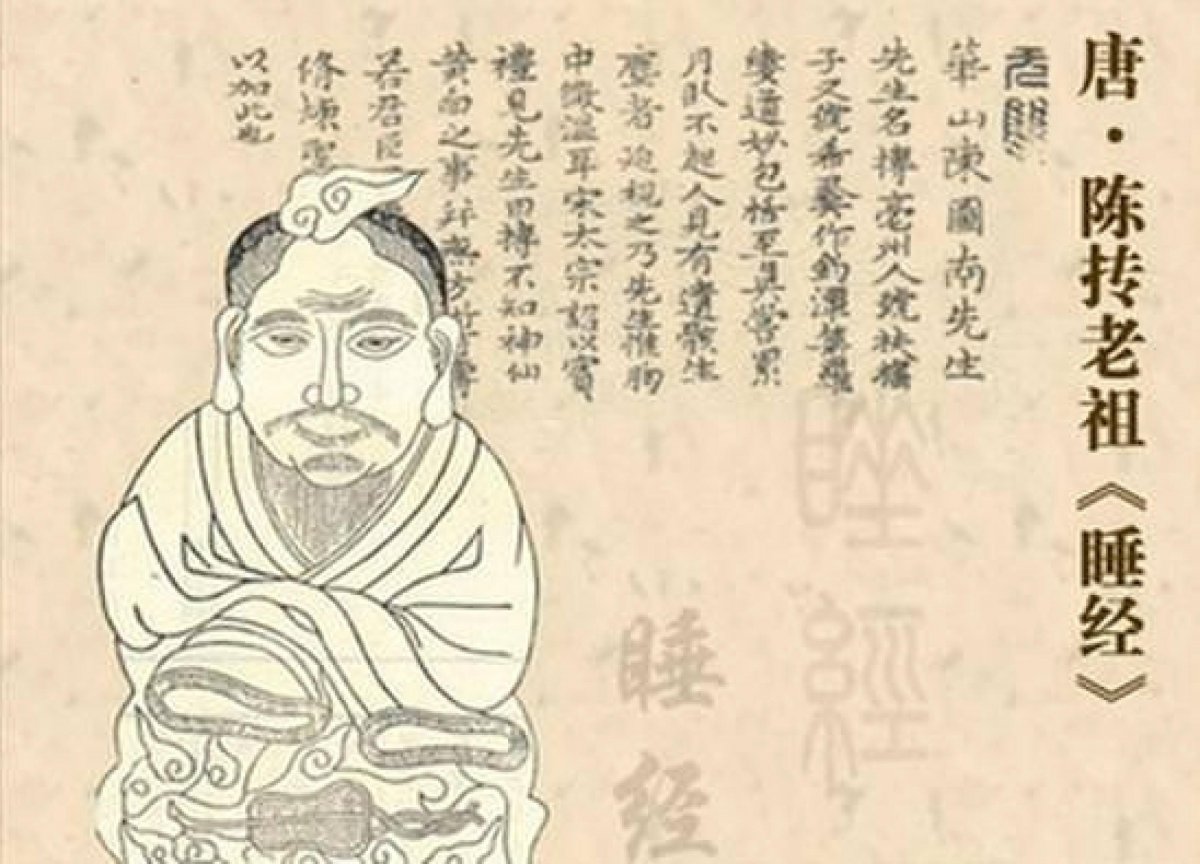 唐·陈抟老祖《睡经》
華山陳圖南先生
先生名摶亳州人號扶摇
子又號希夷作釣潭集
縷道妙包括至真嘗累
月臥不起人見有遺骸生
塵者迫視之乃先生惟胸
中微溫耳宋太宗詔以賓
禮見先生曰摶不知神仙
黄白之事
若君臣
修煉
以加此也
睡經
睡经